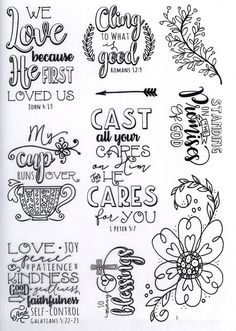 WE
Love
because
He FIRST
LOVED US
JOHN 4:19
Cling
TO WHAT
is
good
ROMANS 12:9
STANDING
ON THE
Promises
OF GOD
My
cup
RUNS OVER
CAST
all your
CARES
on Him
for HE
CARES
for YOU
1 PETER 5:7
LOVE · JOY
peace
PATIENCE
KINDNESS
GOODNESS gentleness
faithfulness
SELF-CONTROL
GALATIANS 5:22-23
SO
many
blessings